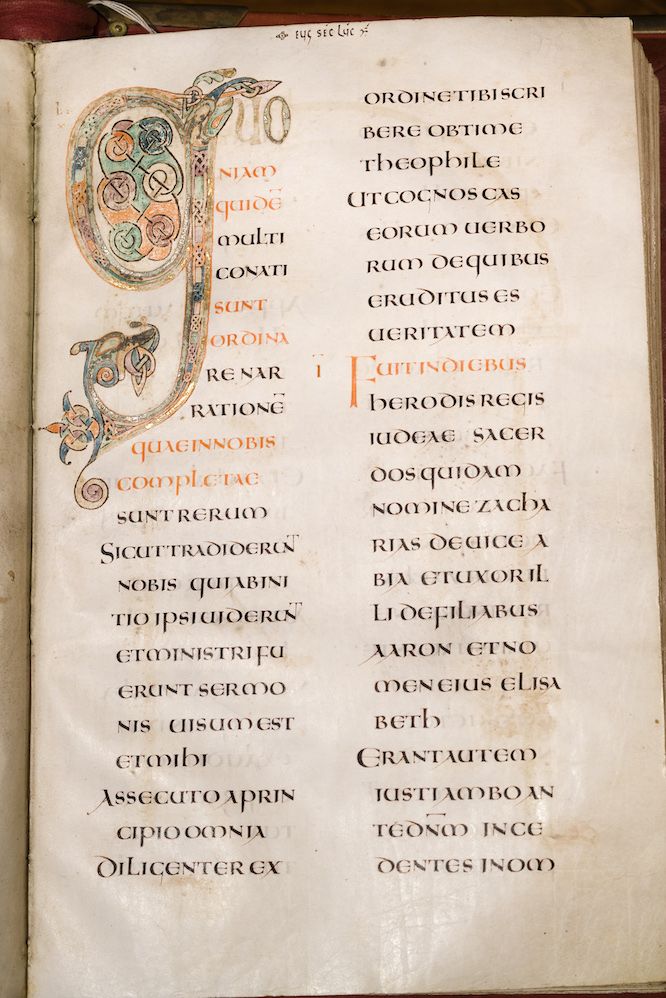 euḡ sēc lūc
QUO
NIAM
QUIDĒ
MULTI
CONATI
SUNT
ORDINA
RE NAR
RATIONĒ
QUAE IN NOBIS
COMPLETAE
SUNT RERUM
SICUT TRADIDERUNT
NOBIS QUI AB INI
TIO IPSI UIDERUNT
ET MINISTRI FU
ERUNT SERMO
NIS UISUM EST
ET MIHI
ASSECUTO A PRIN
CIPIO OMNIA
DILIGENTER EX
ORDINE TIBI SCRI
BERE OBTIME
THEOPHILE
UT COGNOSCAS
EORUM UERBO
RUM DE QUIBUS
ERUDITUS ES
UERITATEM
Ī FUIT IN DIEBUS
HERODIS REGIS
IUDEAE SACER
DOS QUIDAM
NOMINE ZACHA
RIAS DE UICE A
BIA ET UXOR IL
LI DE FILIABUS
AARON ET NO
MEN EIUS ELISA
BETH
ERANT AUTEM
IUSTI AMBO AN
TE DN̄M INCE
DENTES IN OM